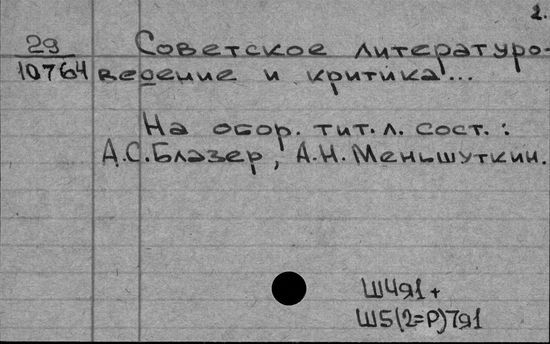 2.
29
10764
Советское литературо-
ведение и критика...
На обор. тит. л. сост.:
А.С. Блазер, А.Н. Меньшуткин.
Ш4я1+
Ш5(2=Р)7я1